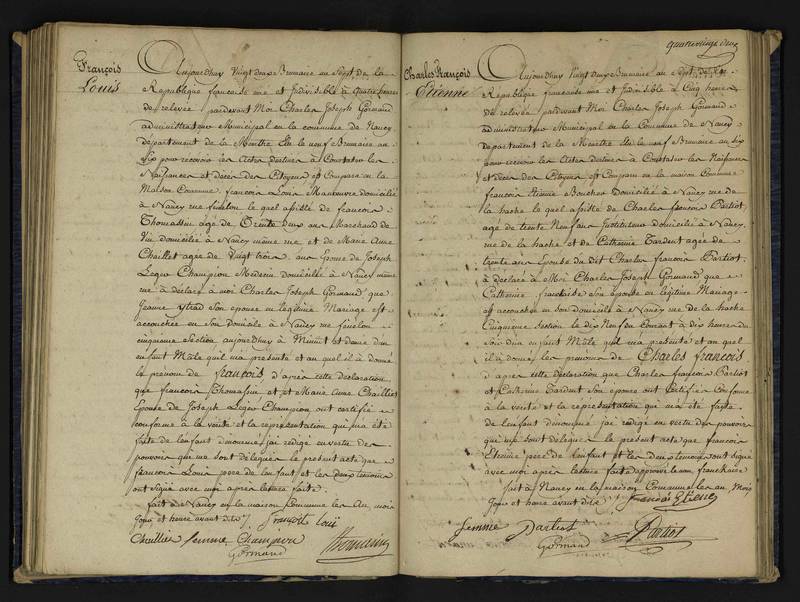 François
Louis
Aujourdhuy Vingt deux Brumaire an Sept de la
République francaise une et Indivisible à quatre heures
de relevée pardevant Moi Charles Joseph Gormand
administrateur Municipal en la commune de Nancy
département de la Meurthe Elu le neuf Brumaire an
Six pour recevoir les Actes destinés à Constater les
Naissances et décès des Citoyens est Comparu en la
Maison Commune francois Louis domicilié
à Nancy rue fenelon le quel assisté de francois
Thomassin âgé de Trente deux ans Marchand de
Vin domicilié à Nancy même rue et de Marie Anne
Chaillet agée de Vingt trois ans Epouse de Joseph
Leger Champion Medecin domicilié à Nancy même
rue à déclaré à moi Charles Joseph Gormand que
Jeanne son epouse en légitime Mariage est
accouchée en son domicile à Nancy rue fenelon
cinqueme Section aujourdhuy à Minuit et demie d'un
enfant Mâle quil m'a présenté et au quel il à donné
le prenom de françois d'après cette déclaration
que francois Thomassin et Marie Anne Chaillet
Epouse de Joseph Leger Champion ont certifié
conforme à la verité et la représentation qui m'a été
faite de l'enfant dénommé, jai rédigé en vertu des
pouvoirs qui me sont délégués le présent acte que
francois Louis pere de l'enfant et les deux temoins
ont signé avec moi après lecture faite.
fait à Nancy en la maison Commune les An, mois
Jour et heure avant dits
François loui
Chaillier femme Champion
Gormand
Thomassin
quatrevingt deux
Charles François
Etienne
Aujourdhuy Vingt deux Brumaire an Sept de la
République francaise une et Indivisible à Cinq heures
de relevée pardevant Moi Charles Joseph Gormand
administrateur Municipal en la Commune de Nancy
département de la Meurthe Elu le neuf Brumaire an Six
pour recevoir les Actes destinés à Constater les Naissances
et décès des Citoyens est Comparu en la maison Commune
francois Etienne Domicilié à Nancy rue de
la hache le quel assisté de Charles francois Partiot
age de trente Neuf ans Instituteur domicilié à Nancy,
rue de la hache et de Catherine Tardent agée de
trente ans Epouse du dit Charles francois Partiot.
à déclaré à Moi Charles Joseph Gormand que
Catherine Son épouse en légitime Mariage
est accouchée en son domicile à Nancy rue de la hache
Cinqueme Section le dix Neuf du Courant à dix heures du
Soir d'un enfant Mâle quil m'a présenté et au quel
il à donné les prenoms de Charles françois
d'après cette déclaration que Charles françois Partiot
et Catherine Tardent Son épouse ont certifié conforme
à la verité et la représentation qui m'a été faite
de l'enfant dénommé jai rédigé en vertu des pouvoirs
qui me sont délégués le présent acte que francois
Etienne pere de l'enfant et les deux temoins ont signé
avec moi après lecture faite
fait à Nancy en la maison Commune les an Mois
Jour et heure avant dits
Etiene
femme Partiot
Gormand
Partiot